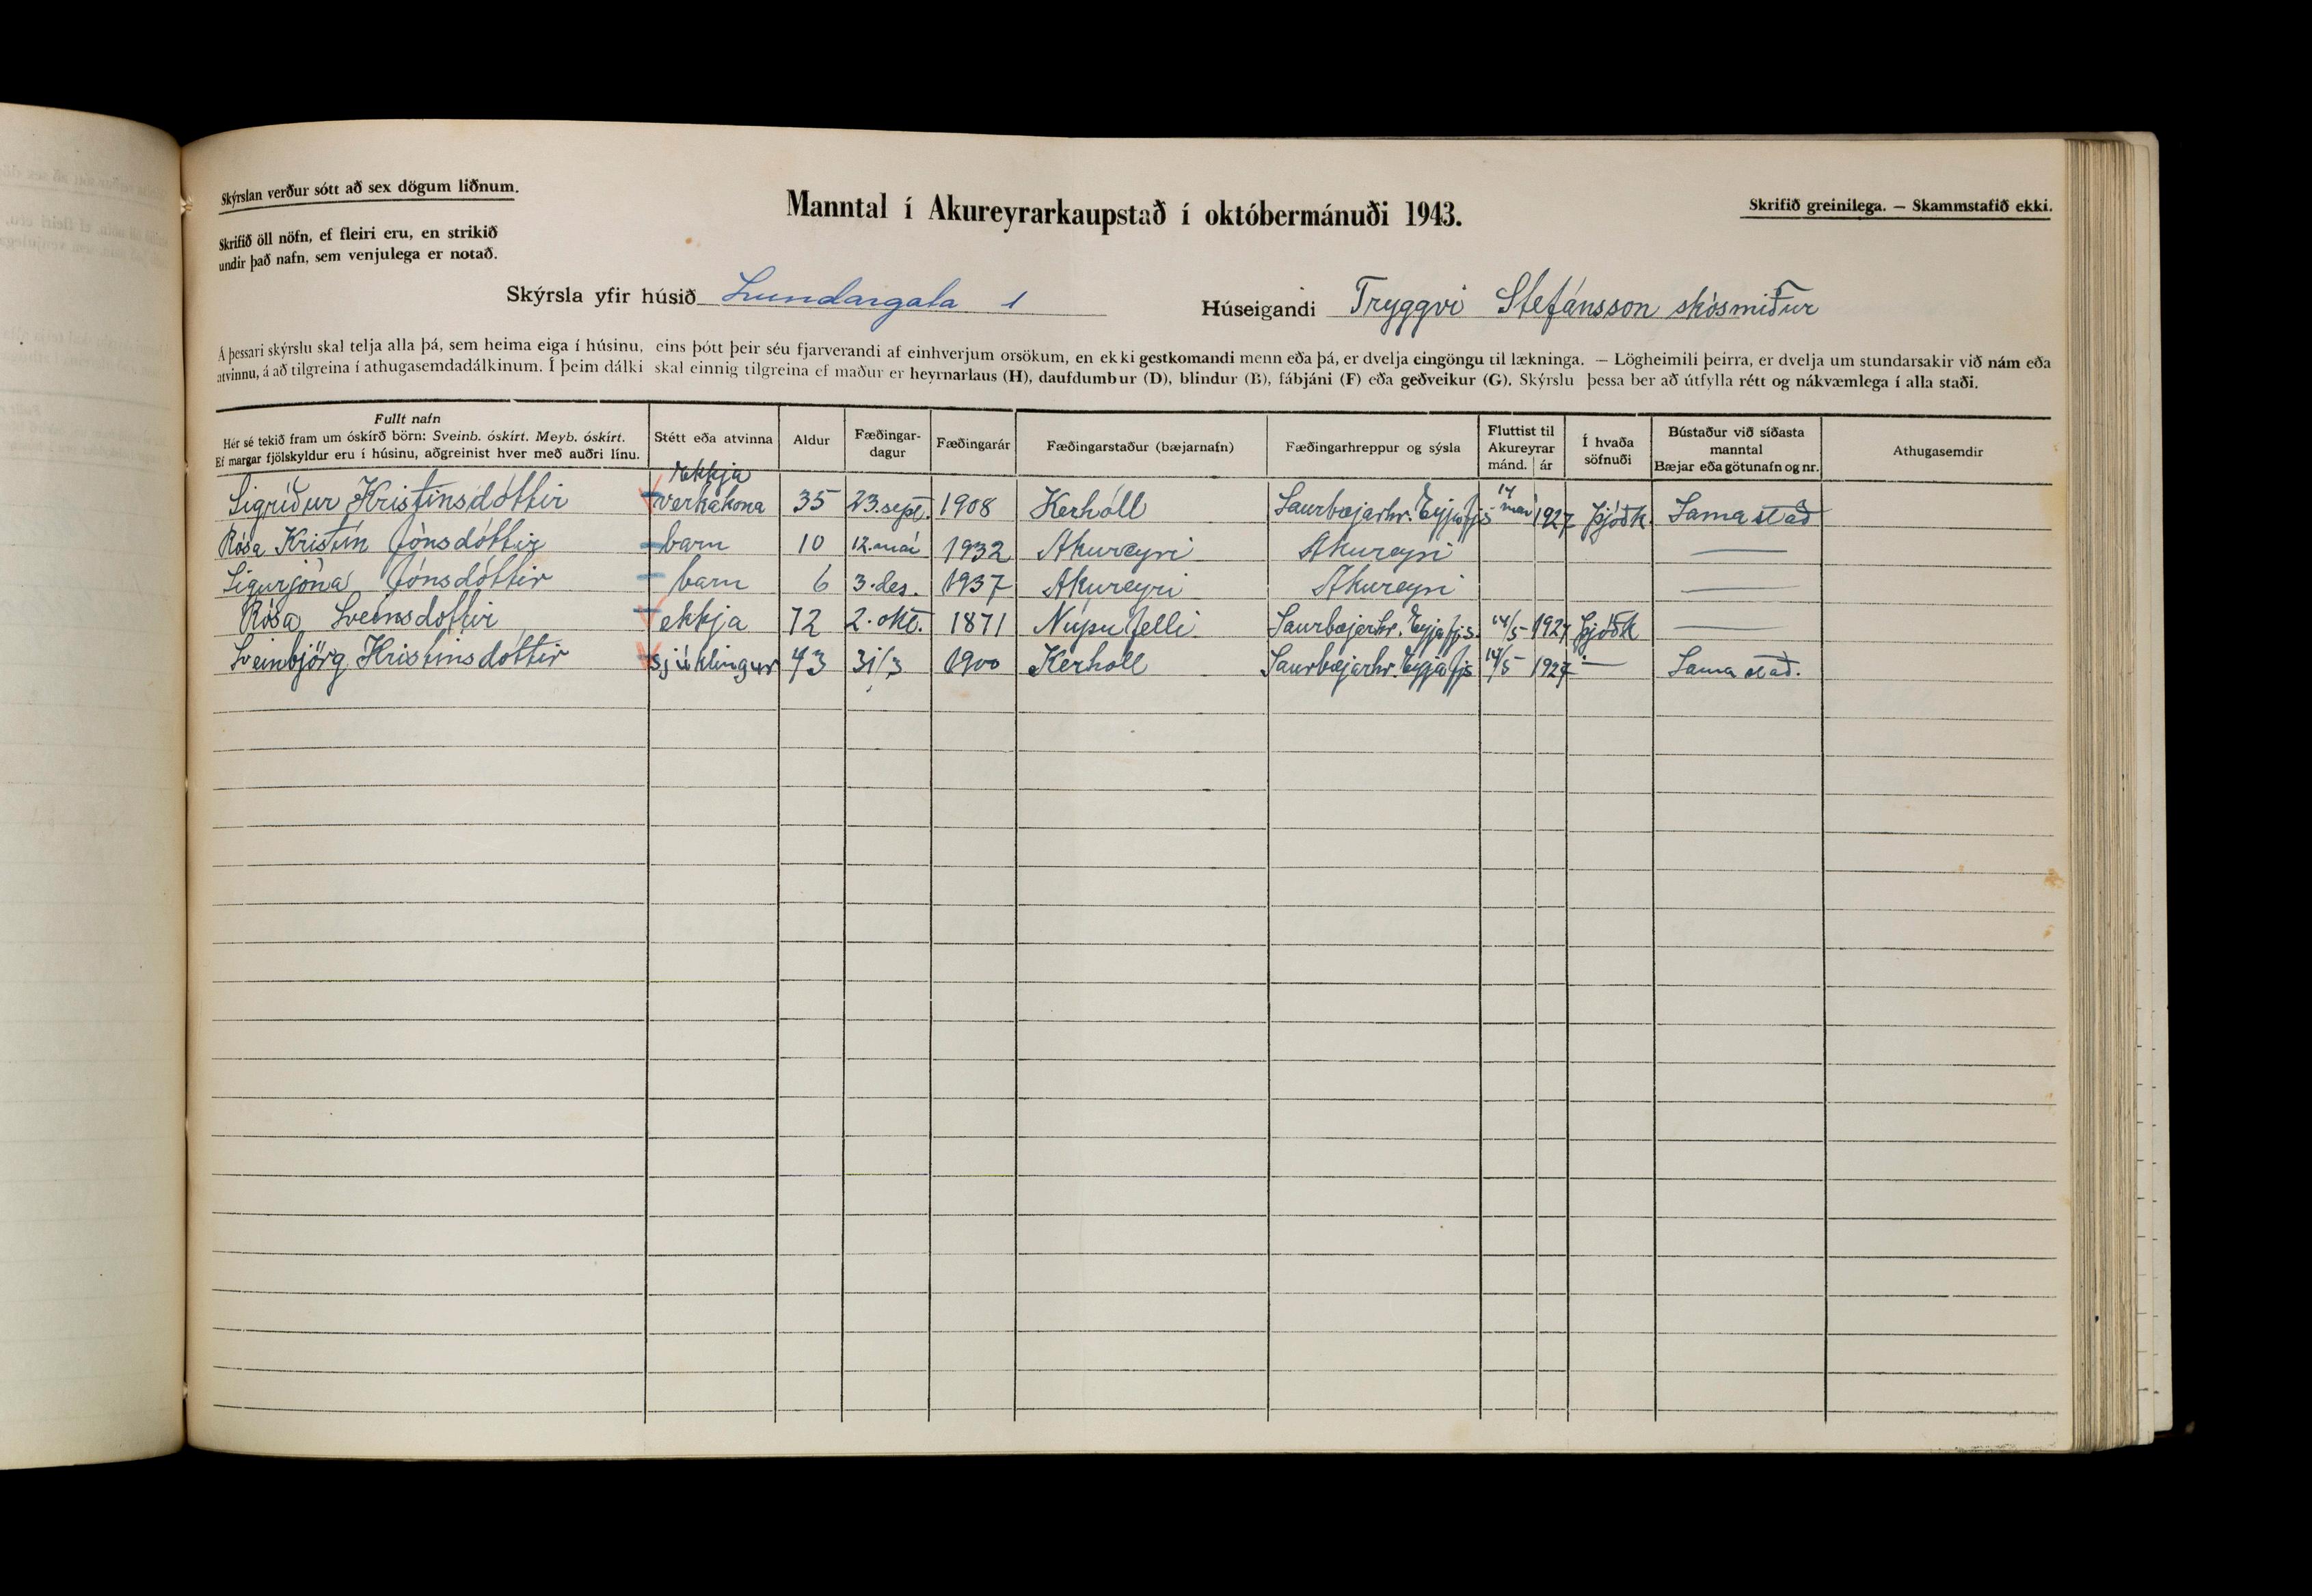 Skýrslan verður sótt að sex dögum liðnum.
Skrifið öll nöfn, ef fleiri eru, en strikið
undir það nafn, sem venjulega er notað.
Manntal í Akureyrarkaupstað í októbermánuði 1943.
Skrifið greinilega. — Skammstafið ekki.
Skýrsla yfir húsið Lundargata 1
Húseigandi Tryggvi Stefánsson skósmiður
Á þessari skýrslu skal telja alla þá, sem heima eiga í húsinu, eins þótt þeir séu fjarverandi af einhverjum orsökum, en ekki gestkomandi menn eða þá, er dvelja eingöngu til lækninga. — Lögheimili þeirra, er dvelja um stundarsakir við nám eða
atvinnu, á að tilgreina í athugasemdadálkinum. Í þeim dálki skal einnig tilgreina ef maður er heyrnarlaus (H), daufdumbur (D), blindur (B), fábjáni (F) eða geðveikur (G). Skýrslu þessa ber að útfylla rétt og nákvæmlega í alla staði.
Fullt nafn
Hér sé tekið fram um óskírð börn: Sveinb. óskírt. Meyb. óskírt.
Ef margar fjölskyldur eru í húsinu, aðgreinist hver með auðri línu.
Stétt eða atvinna
Aldur
Fæðingar-
dagur
Fæðingarár
Fæðingarstaður (bæjarnafn)
Fæðingarhreppur og sýsla
Fluttist til
Akureyrar
mánd. ár
Í hvaða
söfnuði
Bústaður við síðasta
manntal
Bæjar eða götunafn og nr.
Athugasemdir
ekkja
Sigríður Kristinsdóttir verkakona 35 23. sept. 1908 Kerhóll Saurbæjarhr. Eyjafjs 14 maí 1927 þjóðk. Sama stað
Rósa Kristín Jónsdóttir barn 10 12. maí 1932 Akureyri Akureyri —
Sigurjóna Jónsdóttir barn 6 3. des. 1937 Akureyri Akureyri —
Rósa Sveinsdóttir ekkja 72 2. okt. 1871 Núpufelli Saurbæjarhr. Eyjafjs. 14/5 1927 þjóðk —
Sveinbjörg Kristinsdóttir sjúklingur 43 31/3 1900 Kerhóll Saurbæjarhr. Eyjafjs 14/5 1927 — Sama stað.